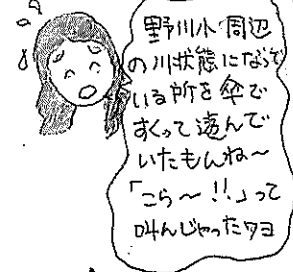 野川小周辺
の川状態になって
いる所を傘で
すくって遊んで
いたもんね〜
「こら〜!!」って
叫んじゃったワヨ